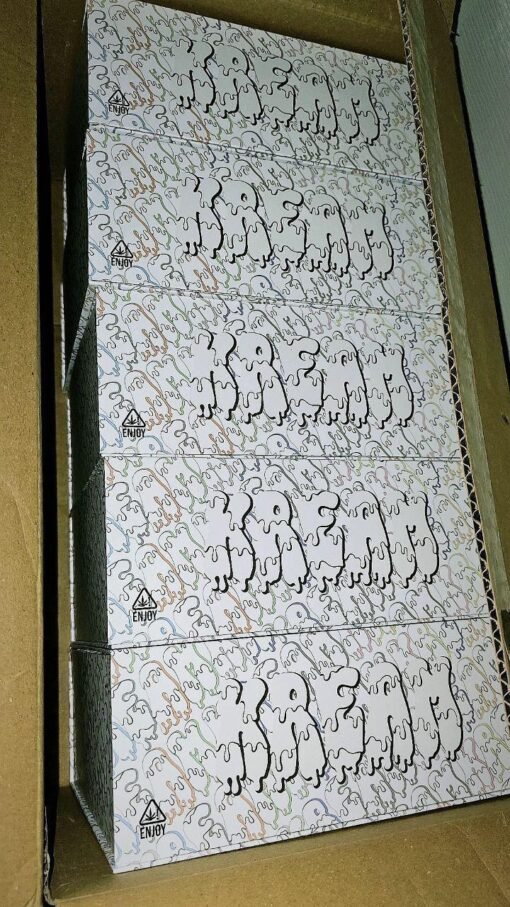 KREAM
ENJOY
KREAM
ENJOY
KREAM
ENJOY
KREAM
ENJOY
KREAM
ENJOY